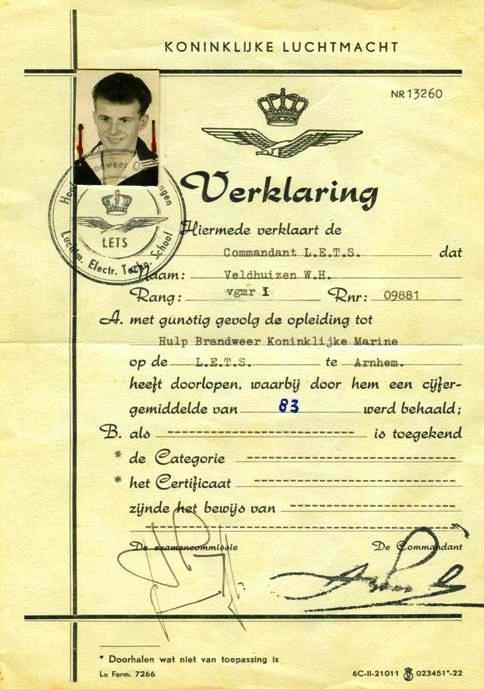 KONINKLIJKE LUCHTMACHT
NR 13260
Verklaring
Hiermede verklaart de
Commandant L.E.T.S. dat
Naam: Veldhuizen W.H.
Rang: vgmr I Rnr: 09881
A. met gunstig gevolg de opleiding tot
Hulp Brandweer Koninklijke Marine
op de L.E.T.S. te Arnhem.
heeft doorlopen, waarbij door hem een cijfer-
gemiddelde van 83 werd behaald;
B. als ---------------------- is toegekend
* de Categorie ----------------------
* het Certificaat ----------------------
zijnde het bewijs van ----------------------
De examencommissie De Commandant
* Doorhalen wat niet van toepassing is
Lu Form. 7266
6C-II-21011 023451*-22
Brandweer
LETS
Luchtm. Electr. Techn. School